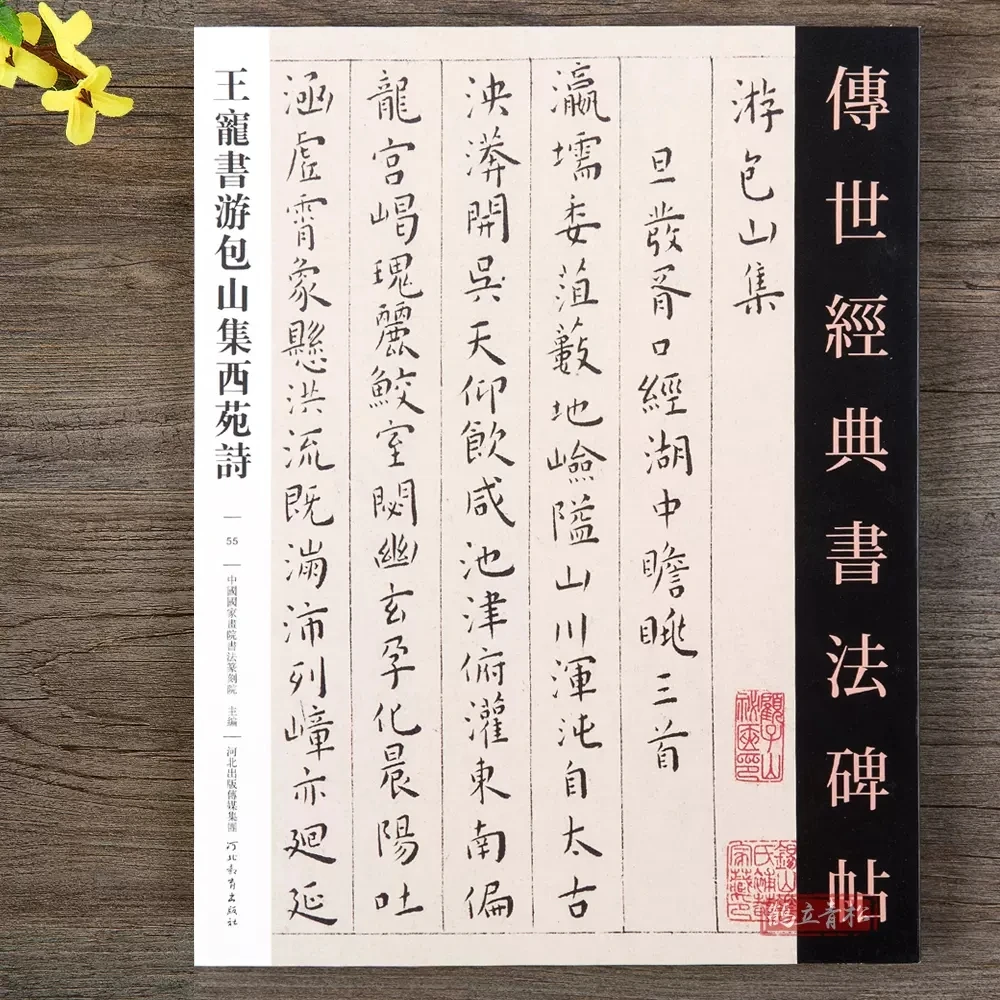 傳世經典書法碑帖
游包山集
旦發胥口經湖中瞻眺三首
瀛壖委菹藪地嶮隘山川渾沌自太古
泱漭開吳天仰飲咸池津俯灌東南偏
龍宮嵑瑰麗鮫室閟幽玄孕化晨陽吐
涵虛霄象懸洪流既瀰沛列嶂亦廻延
王寵書游包山集西苑詩
55
中國國家畫院書法篆刻院 主編
河北出版傳媒集團
河北教育出版社
鶴立青松